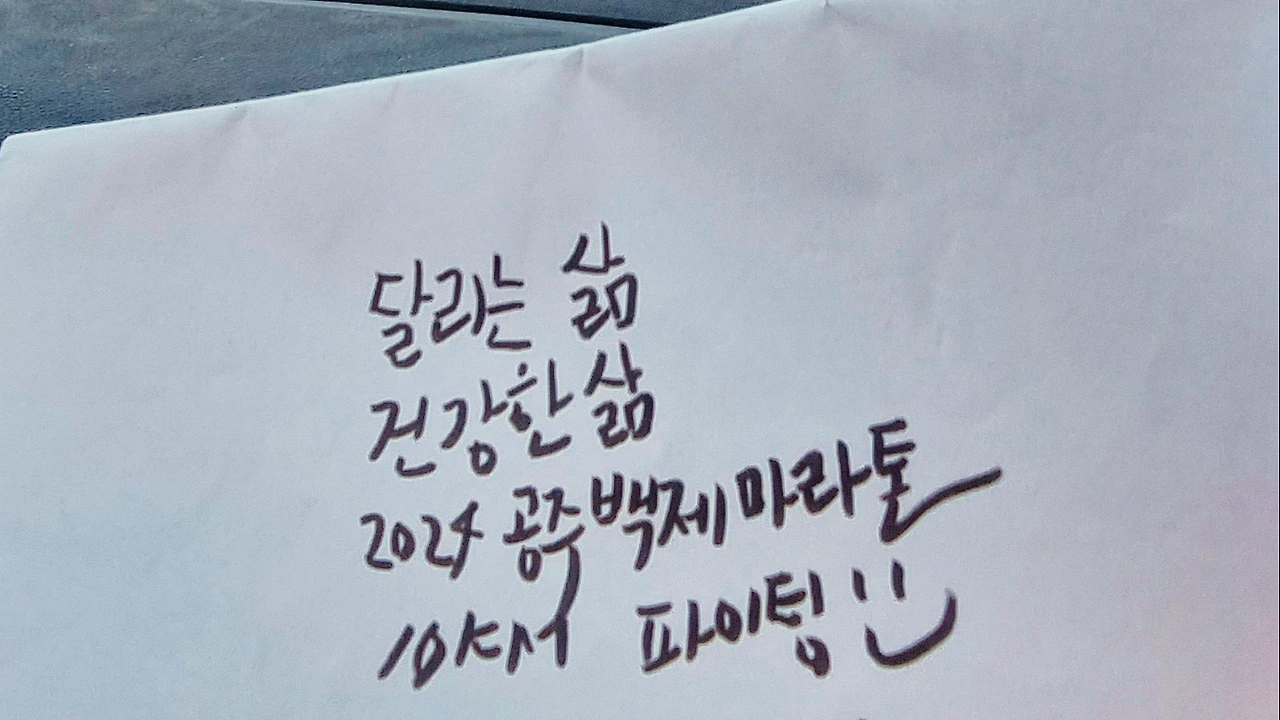 달리는 삶
건강한 삶
2024 공주백제마라톤
10KM 파이팅 :)